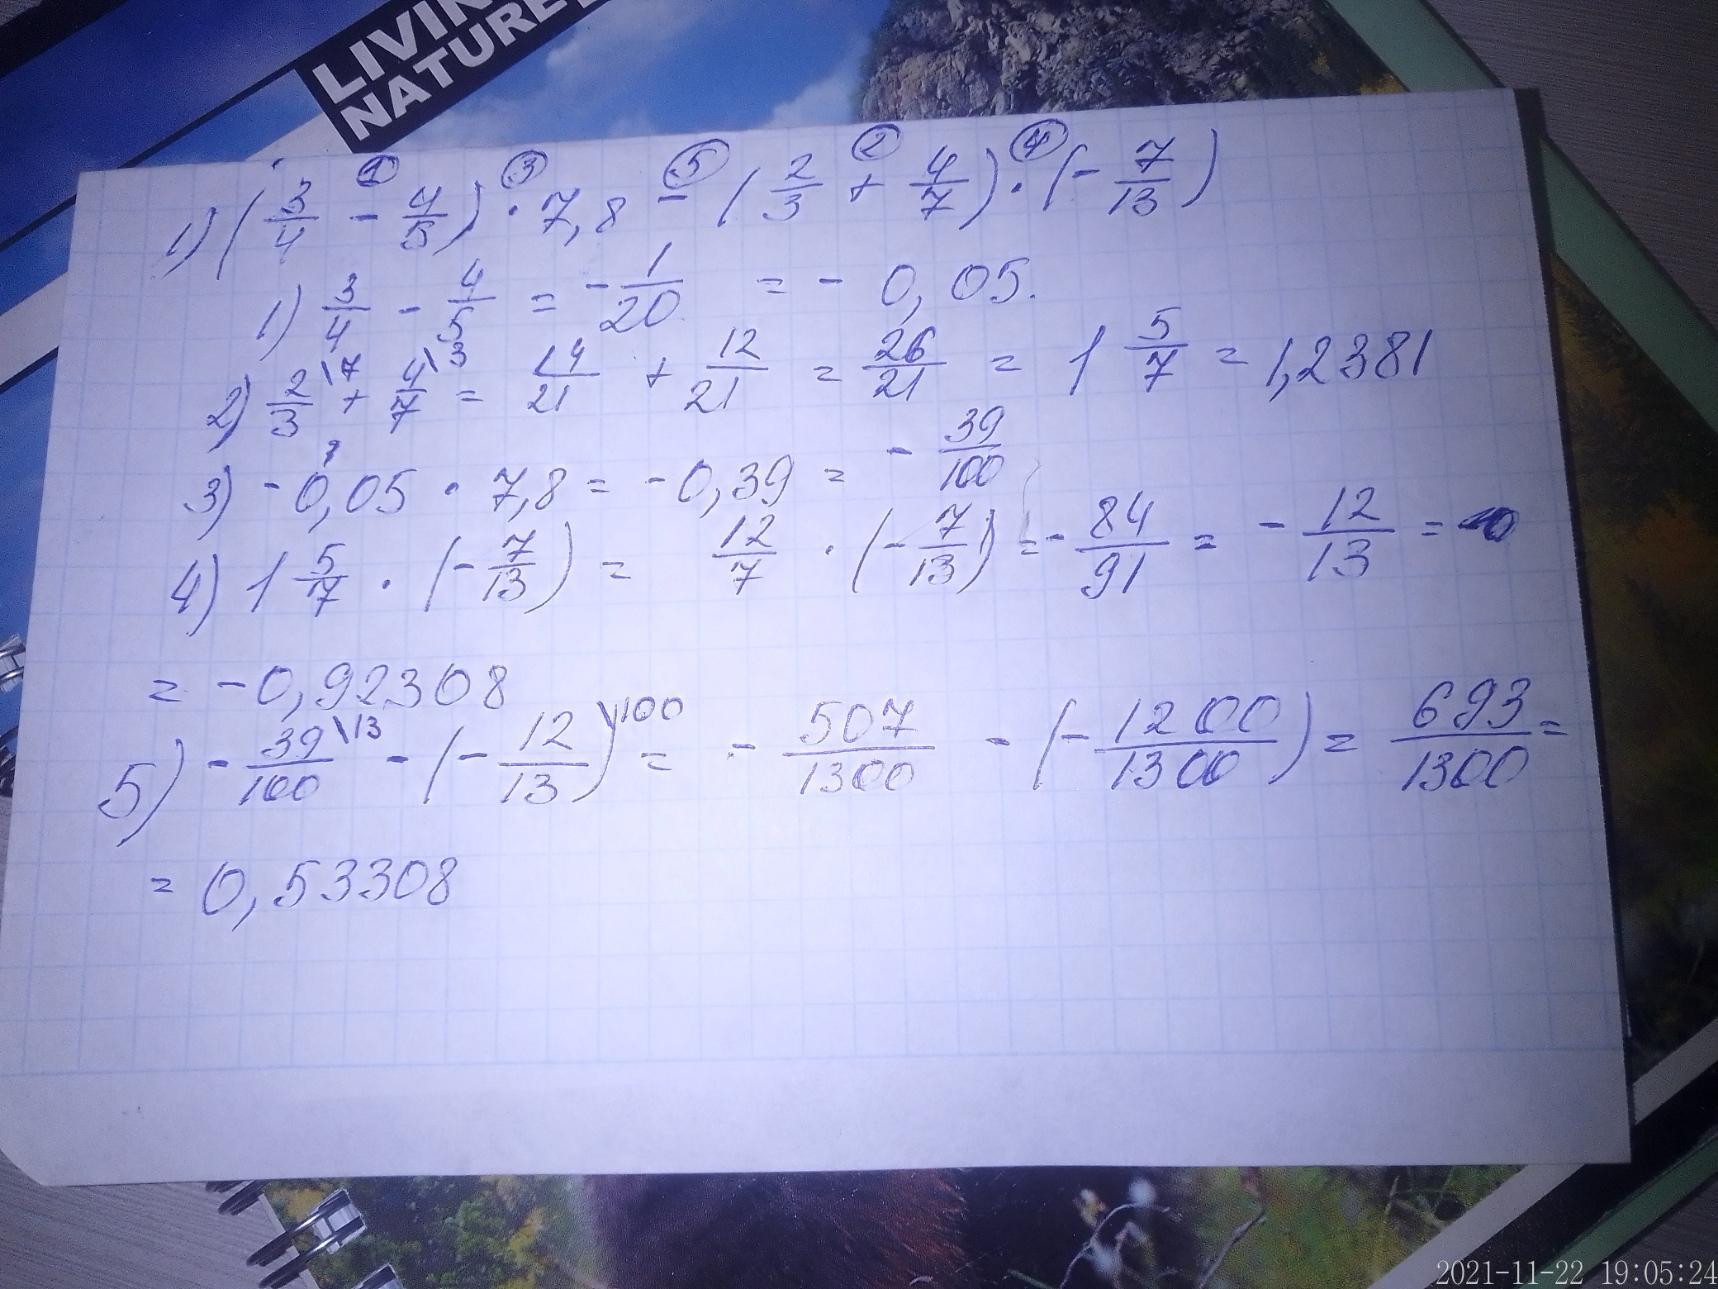 LIVING
NATURE
1) (3/4 - 4/5) · 7,8 - (2/3 + 4/7) · (- 7/13)
1) 3/4 - 4/5 = - 1/20 = - 0,05.
2) 2/3 \7 + 4/7 \3 = 14/21 + 12/21 = 26/21 = 1 5/7 = 1,2381
3) - 0,05 · 7,8 = - 0,39 = - 39/100
4) 1 5/7 · (- 7/13) = 12/7 · (- 7/13) = - 84/91 = - 12/13 =
= - 0,92308
5) - 39/100 \13 - (- 12/13) \100 = - 507/1300 - (- 1200/1300) = 693/1300 =
= 0,53308
2021-11-22 19:05:24